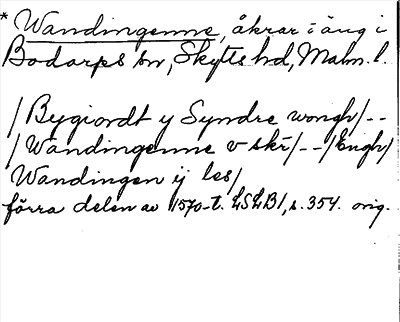 * Wandingenne, åkrar i äng i
Bodarps sn, Skytts hd, Malm. l.
/ Bygiordt y Syndre wongh/--
/ Wandingenne v skr̄/--/Engh/
Wandingen ij les/
förra delen av 1570-t. LSLB1, s. 354. orig.